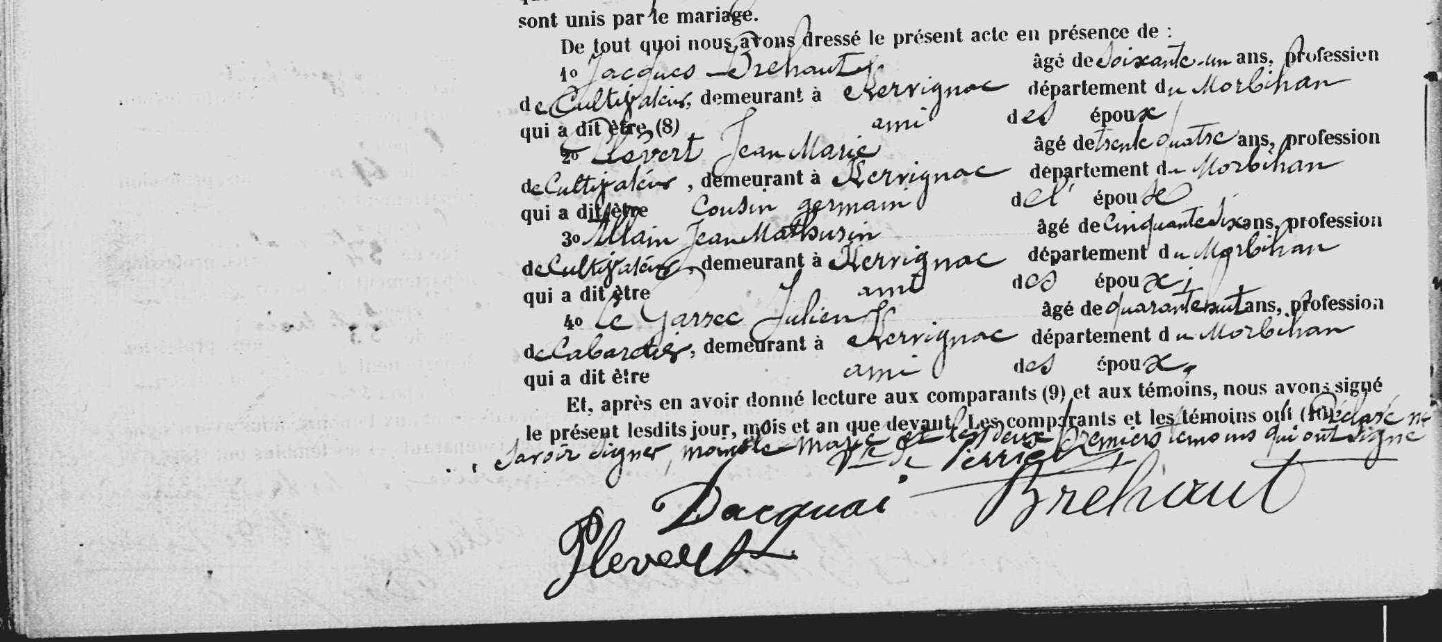 sont unis par le mariage.
De tout quoi nous avons dressé le présent acte en présence de :
1º Jacques Bréhaut âgé de Soixante-un ans, profession
de Cultivateur, demeurant à Kervignac département du Morbihan
qui a dit être (8) ami des époux
2º Plévert Jean Marie âgé de trente quatre ans, profession
de Cultivateur, demeurant à Kervignac département du Morbihan
qui a dit être Cousin germain de l' épouse
3º Allain Jean Mathurin âgé de Cinquante six ans, profession
de Cultivateur, demeurant à Kervignac département du Morbihan
qui a dit être ami des époux ;
4º Le Garrec Julien âgé de quarante huit ans, profession
de Cabaretier, demeurant à Kervignac département du Morbihan
qui a dit être ami des époux.
Et, après en avoir donné lecture aux comparants (9) et aux témoins, nous avons signé
le présent lesdits jour, mois et an que devant. Les comparants et les témoins ont (10) déclaré ne
savoir signer, moins le marié et les deux premiers témoins qui ont signé
Dacquai Bréhaut
Plevert